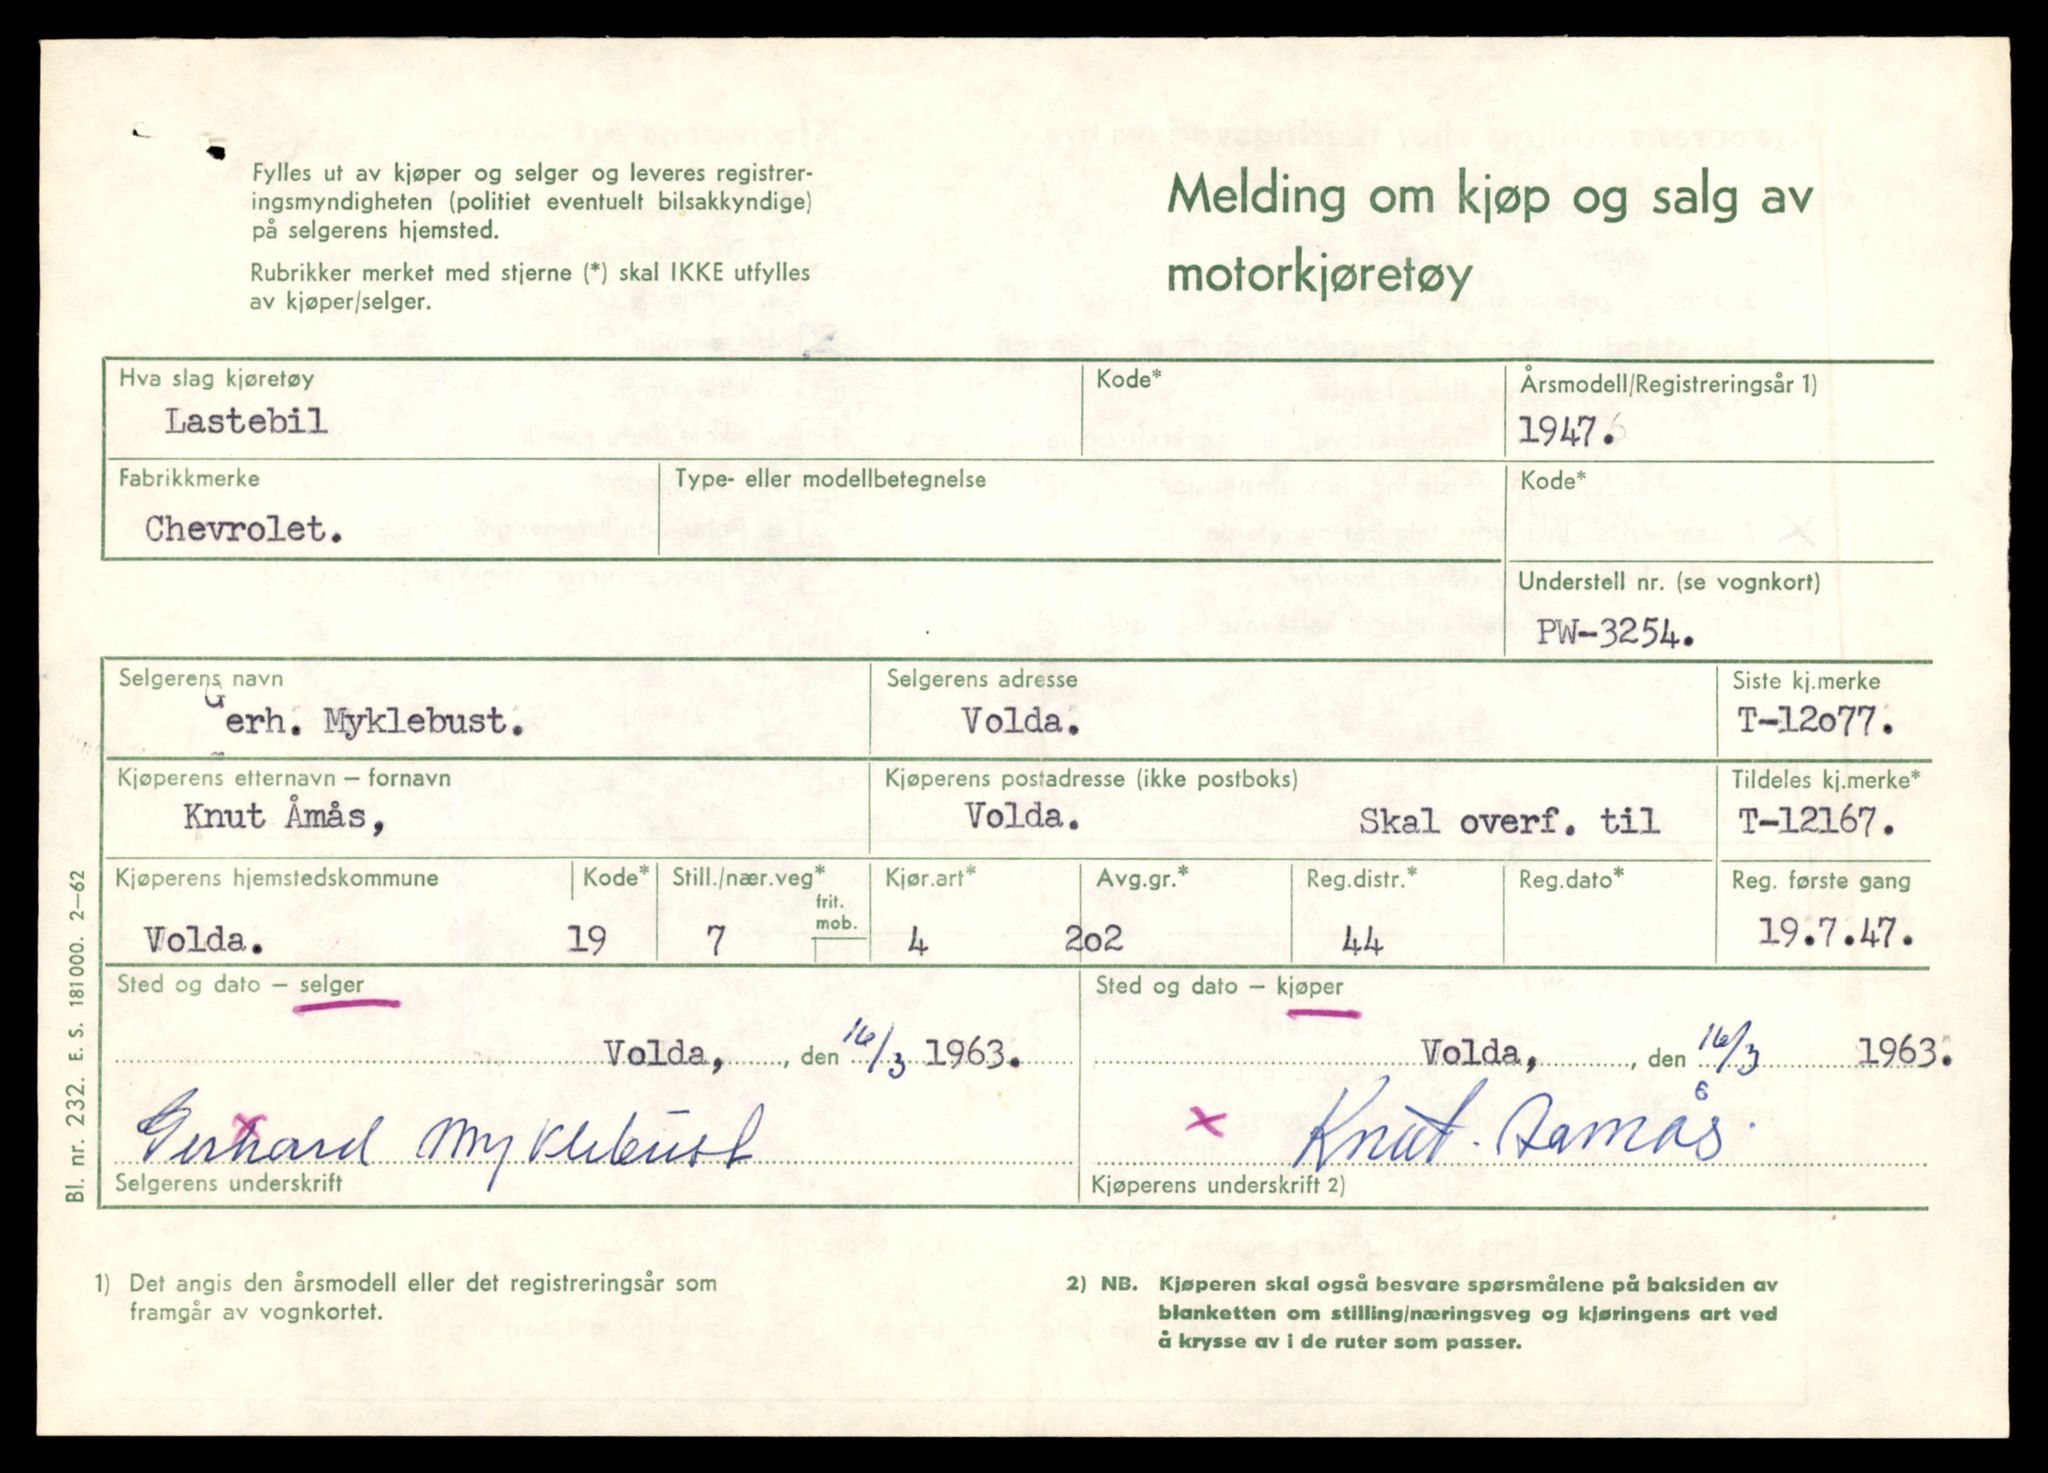 Fylles ut av kjøper og selger og leveres registrer-
ingsmyndigheten (politiet eventuelt bilsakkyndige)
på selgerens hjemsted.
Rubrikker merket med stjerne (*) skal IKKE utfylles
av kjøper/selger.
Melding om kjøp og salg av
motorkjøretøy
Hva slag kjøretøy
Lastebil
Kode*
Årsmodell/Registreringsår 1)
1947.
Fabrikkmerke
Chevrolet.
Type- eller modellbetegnelse
Kode*
Understell nr. (se vognkort)
PW-3254.
Selgerens navn
Gerh. Myklebust.
Selgerens adresse
Volda.
Siste kj.merke
T-12o77.
Kjøperens etternavn – fornavn
Knut Åmås,
Kjøperens postadresse (ikke postboks)
Volda. Skal overf. til
Tildeles kj.merke*
T-12167.
Kjøperens hjemstedskommune
Volda.
Kode*
19
Still./nær.veg*
7
frit.
mob.
Kjør.art*
4
Avg.gr.*
2o2
Reg.distr.*
44
Reg.dato*
Reg. første gang
19.7.47.
Sted og dato – selger
Volda, , den 16/3 1963.
Gerhard Myklebust
Selgerens underskrift
Sted og dato – kjøper
Volda, , den 16/3 1963.
x Knut. Aamås.
Kjøperens underskrift 2)
Bl. nr. 232. E. S. 181000. 2–62
1) Det angis den årsmodell eller det registreringsår som
framgår av vognkortet.
2) NB. Kjøperen skal også besvare spørsmålene på baksiden av
blanketten om stilling/næringsveg og kjøringens art ved
å krysse av i de ruter som passer.